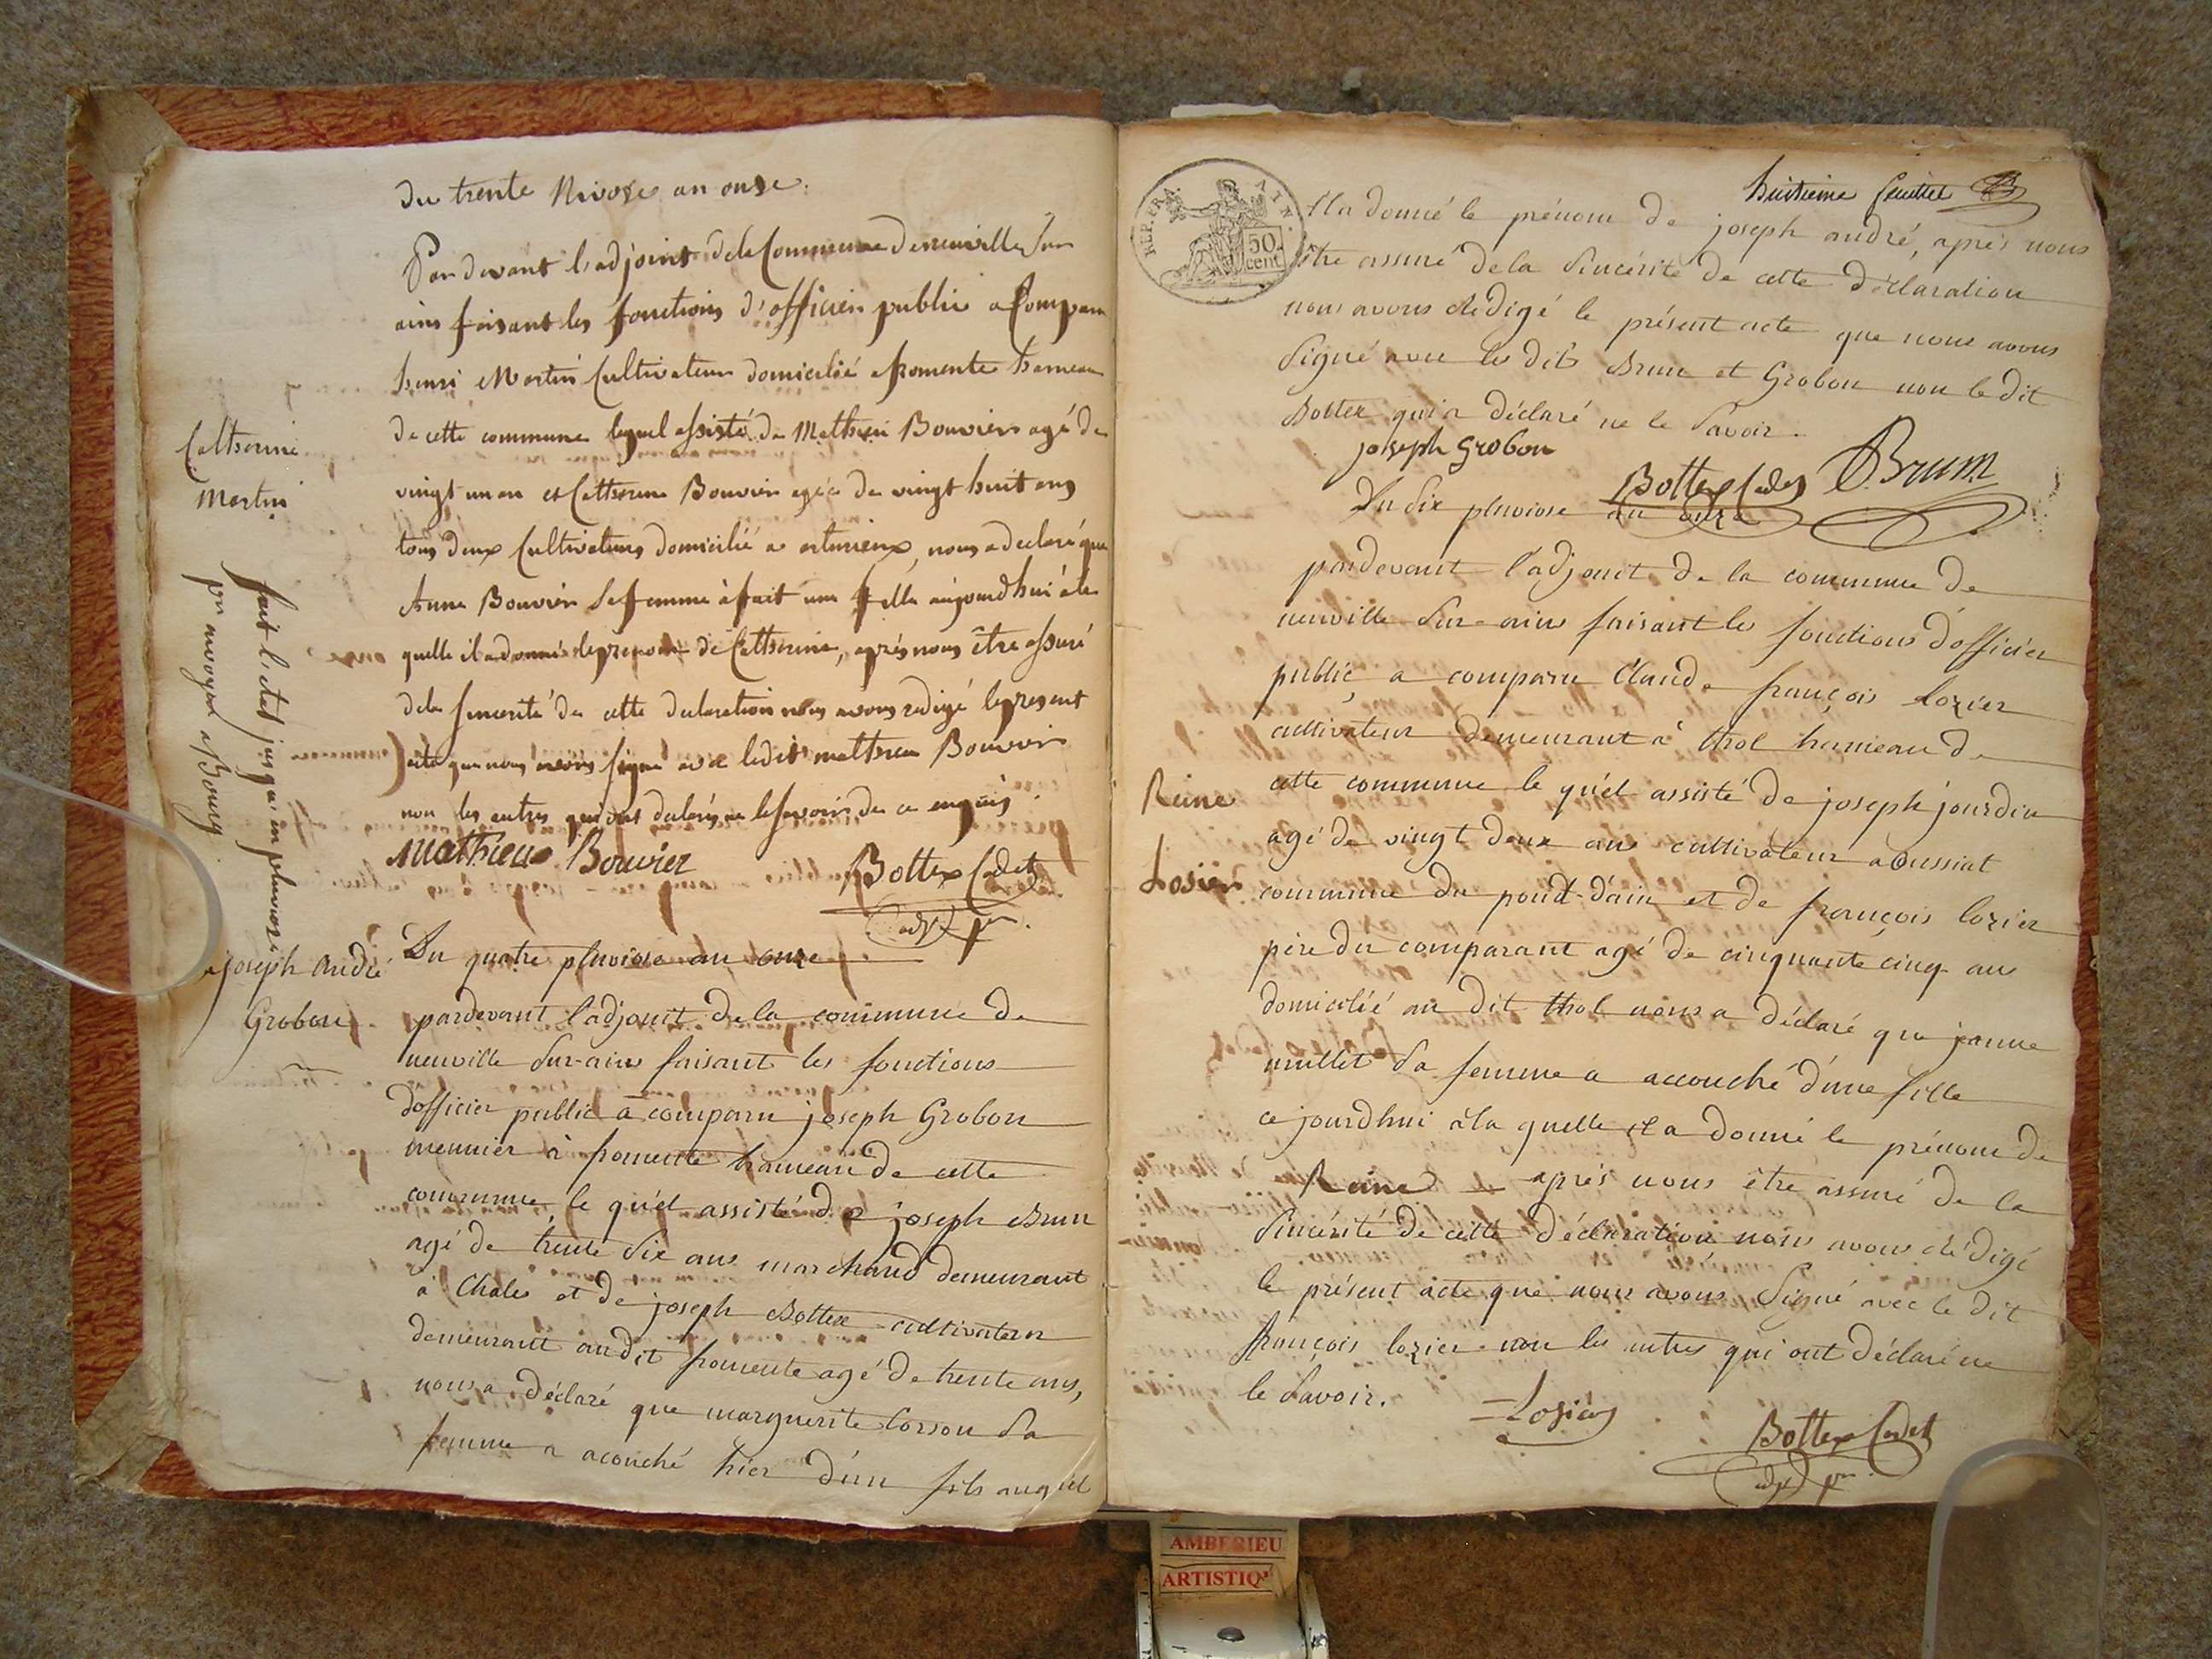 du trente Nivose an onze.
Pardevant l'adjoint de la Commune de neuville sur
ains faisant les fonctions d'officier public a Comparu
henri Martin Cultivateur domicilié a fromente hameau
de cette commune lequel assisté de Mathieu Bouvier agé de
vingt un an et Catherine Bouvier agée de vingt huit ans
tous deux Cultivateurs domicilié a, nous a declaré que
Anne Bouvier Sa femme à fait une fille aujourdhui à la
quelle il a donné le prenom de Catherine, après nous être assuré
de la sincerité de cette declaration nous avons redigé le present
acte que nous avons signé avec ledit mathieu Bouvier
non les autres qui ont declaré ne le savoir de ce enquis.
Mathieu Bouvier
Bottex Cadet
adjt
Catherine
Martin
fait l'etat jusqu'en pluviose
pr envoyer a Bourg
joseph André
Grobon
Du quatre pluviose an onze
pardevant l'adjoint de la commune de
neuville Sur-ains faisant les fonctions
d'officier public a comparu joseph Grobon
meunier à fromente hameau de cette
commune, le quel assisté de joseph Brun
agé de trente Six ans marchand demeurant
à Chales et de joseph Bottex cultivateur
demeurant au dit fromente agé de trente ans,
nous a déclaré que marguerite Corson Sa
femme a acouché hier d'un fils auquel
huitieme feuillet
REP. FRA.
50
cent
il a donné le prénom de joseph andré, après nous
être assuré de la Sincérité de cette déclaration
nous avons rédigé le présent acte que nous avons
Signé avec les dits Brun et Grobon non le dit
Bottex qui a déclaré ne le Savoir.
joseph Grobon
Bottex Cadet
Brun
Du Six pluviose an onze
pardevant l'adjoint de la commune de
neuville Sur-ains faisant les fonctions d'officier
public, a comparu Claude françois lozier
cultivateur demeurant à thol hameau de
cette commune le quel assisté de joseph jourdin
agé de vingt deux ans cultivateur a oussiat
commune du pont-d'ain et de françois lozier
père du comparant agé de cinquante cinq ans
domicilié au dit thol nous a déclaré que jeanne
millet Sa femme a accouché d'une fille
ce jourdhui à la quelle il a donné le prénom de
Reine après nous être assuré de la
Sincérité de cette déclaration nous avons rédigé
le présent acte que nous avons Signé avec le dit
françois lozier non les autres qui ont déclaré ne
le Savoir.
Reine
Losier
Losier
Bottex Cadet
adjt
AMBERIEU
ARTISTIQ